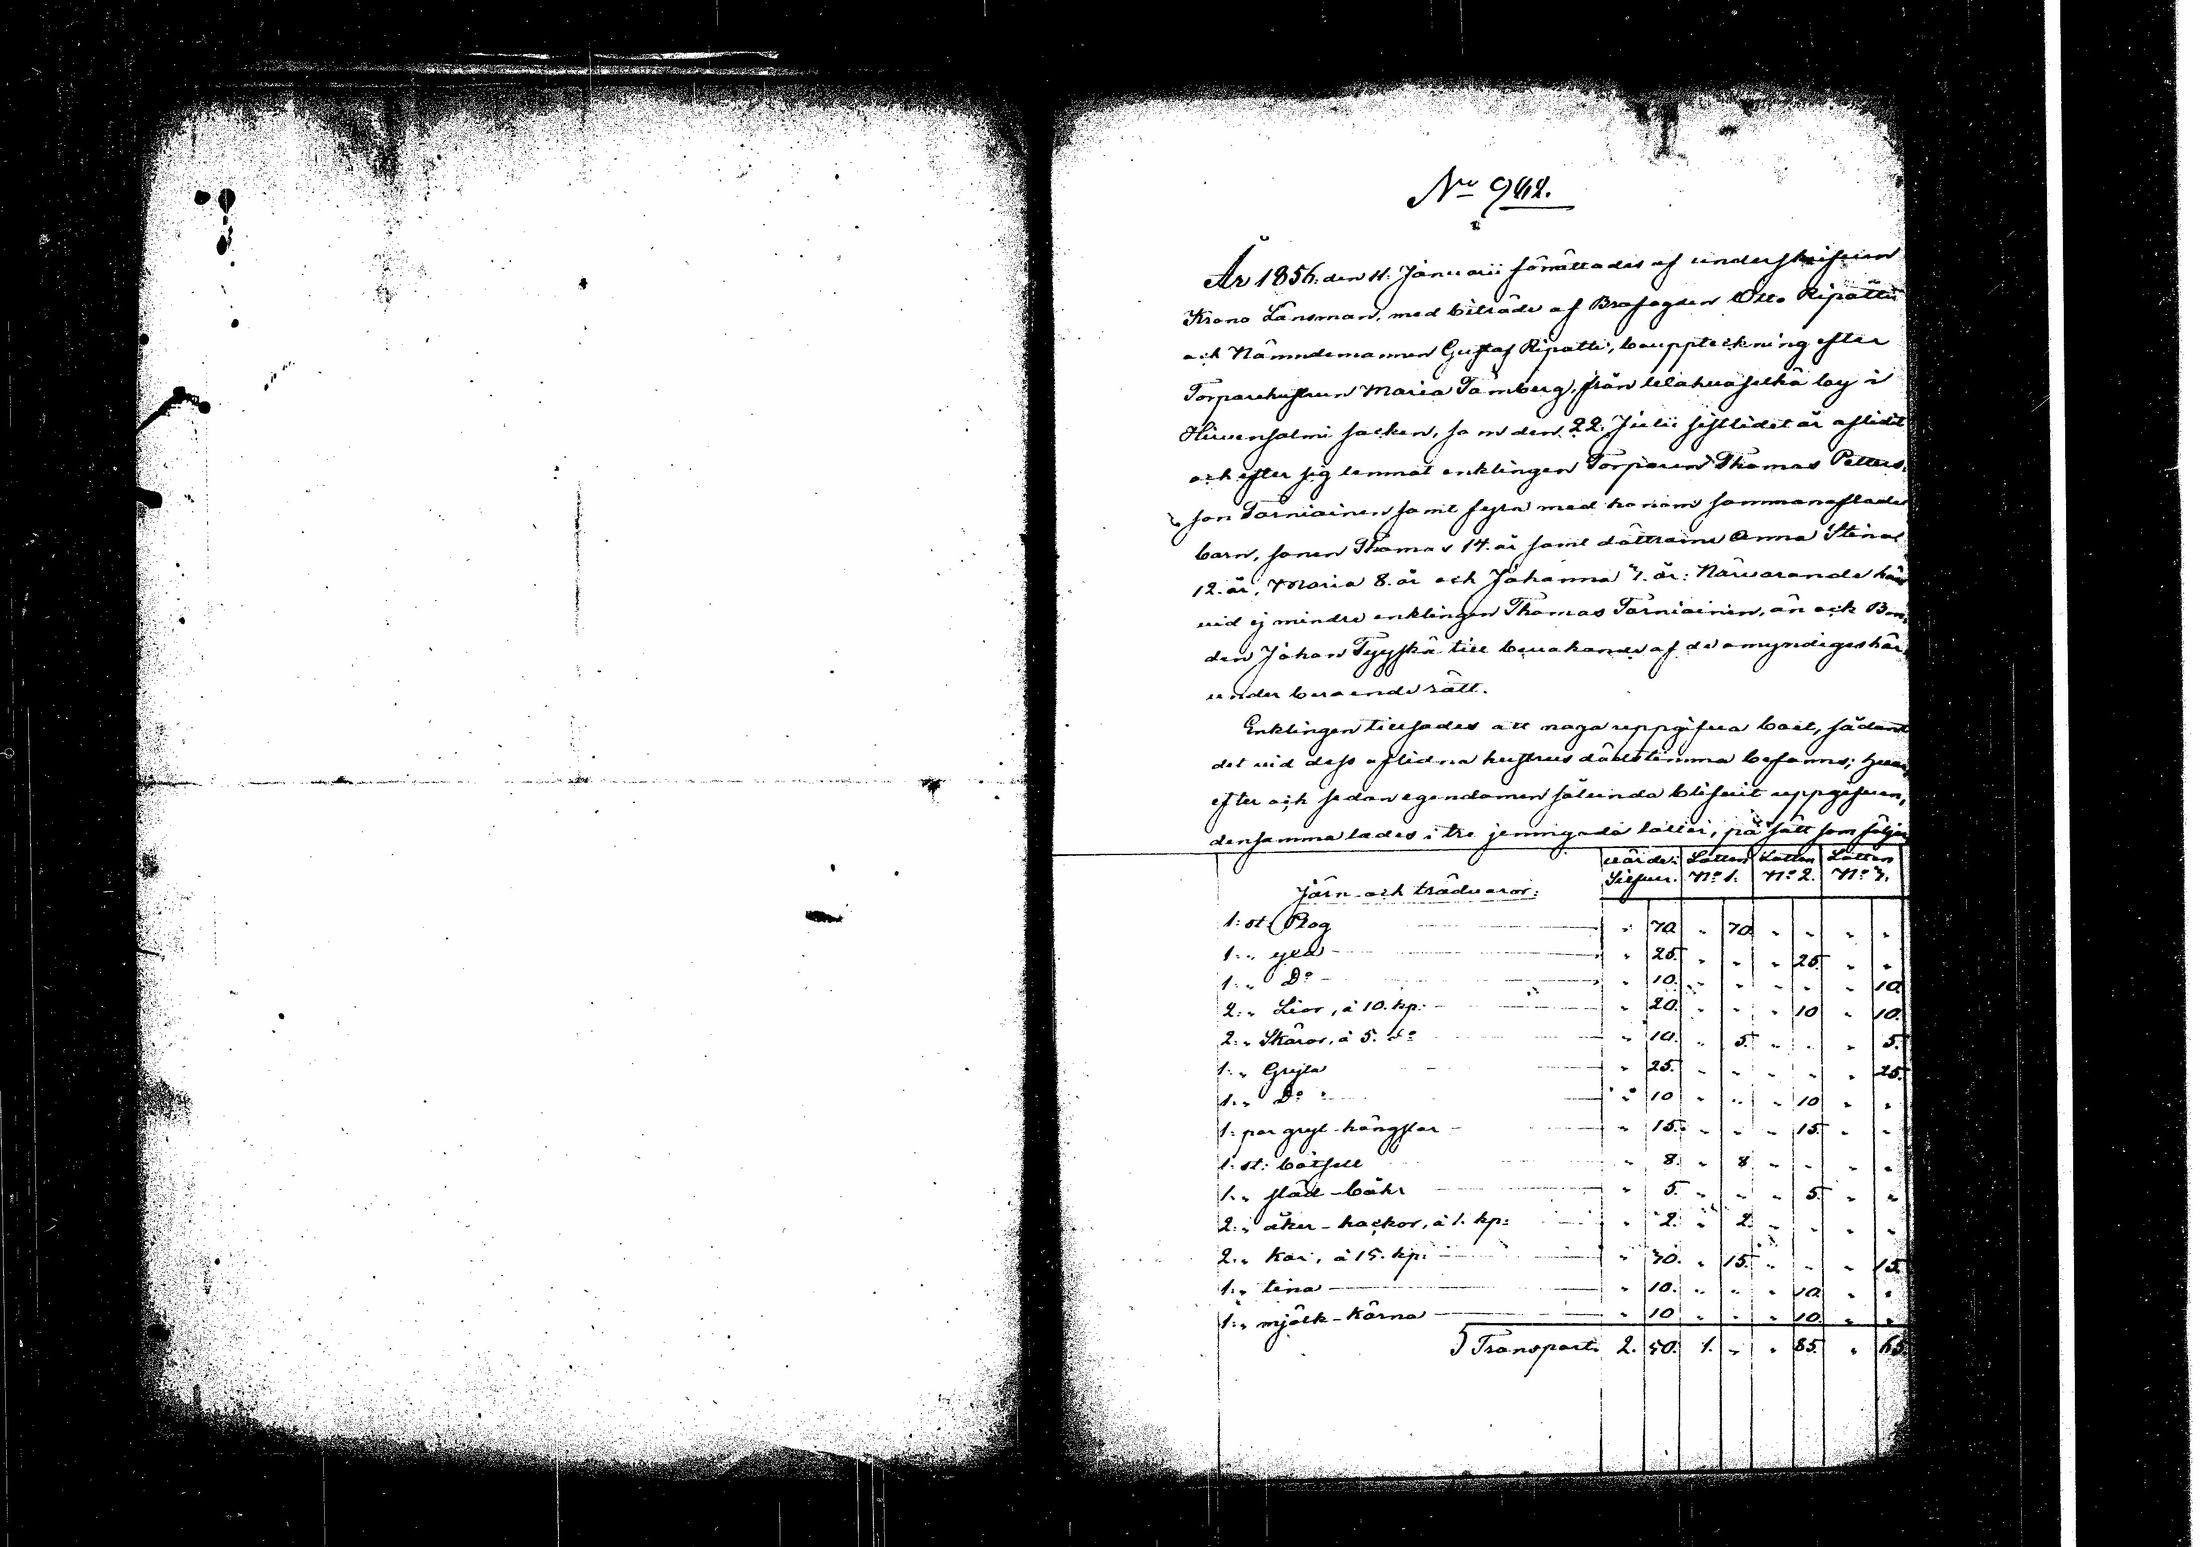 No 942.
År 1856. den 11. Januarii förrättades af underskrifven
Krono Länsman, med biträde af Brofogden Otto Ripatti
och Nämndemannen Gustaf Ripatti, bouppteckning efter
Torparehustrun Maria Tamberg, från by i
Hirvensalmi socken, som den 22. Julii sistlidet år aflidit
och efter sig lemnat enklingen Torparen Thomas Petters-
son Tarniainen samt fyra med honom sammanaflade
barn, sonen Thomas 14. år samt döttrarne Anna Stina
12. år, Maria 8. år och Johanna 3. år: Närvarande här
vid ej mindre enklingen Thomas Tarniainen, än ock Bon-
den Johan Tyyskä till bevakande af de omyndiges här-
under beroende rätt.
Enklingen tillsades att noga uppgifva boet, sådant
det vid dess aflidna hustrus dödstimma befanns; hvar-
efter och sedan egendomen sålunda blifvit uppgifven,
densamma lades i tre jemngoda lotter, på sätt som följer
Järn- och trädvaror: Värde: Silfver. Lotten No 1. Lotten No 2. Lotten No 3.
1: st: Plog " 70. " 70. " " " "
1: " yxa " 25. " " " 25. " "
1: " Do " 10. " " " " " 10.
2: " Lior, à 10. kp: " 20. " " " 10 " 10.
2: " Skäror, à 5. do " 10. " 5. " " " 5.
1: " Gryta " 25. " " " " " 25.
1: " Do " 10 " " " 10 " "
1: par gryt-hängslar " 15. " " " 15. " "
1: st: " 8. " 8 " " " "
1: " " 5. " " " 5. " "
2: " åker-hackor, à 1. kp: " 2. " 2 " " " "
2: " Kar, à 15. kp: " 30. " 15. " " " 15.
1: " tina " 10. " " " 10. " "
1: " mjölk-Kärna " 10 " " " 10. " "
Transport. 2. 50. 1. " " 85. " 65.